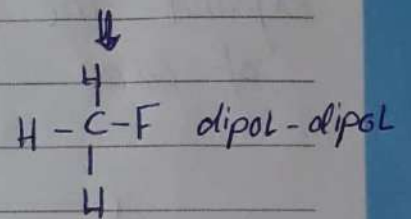 H
H - C - F dipol - dipol
H